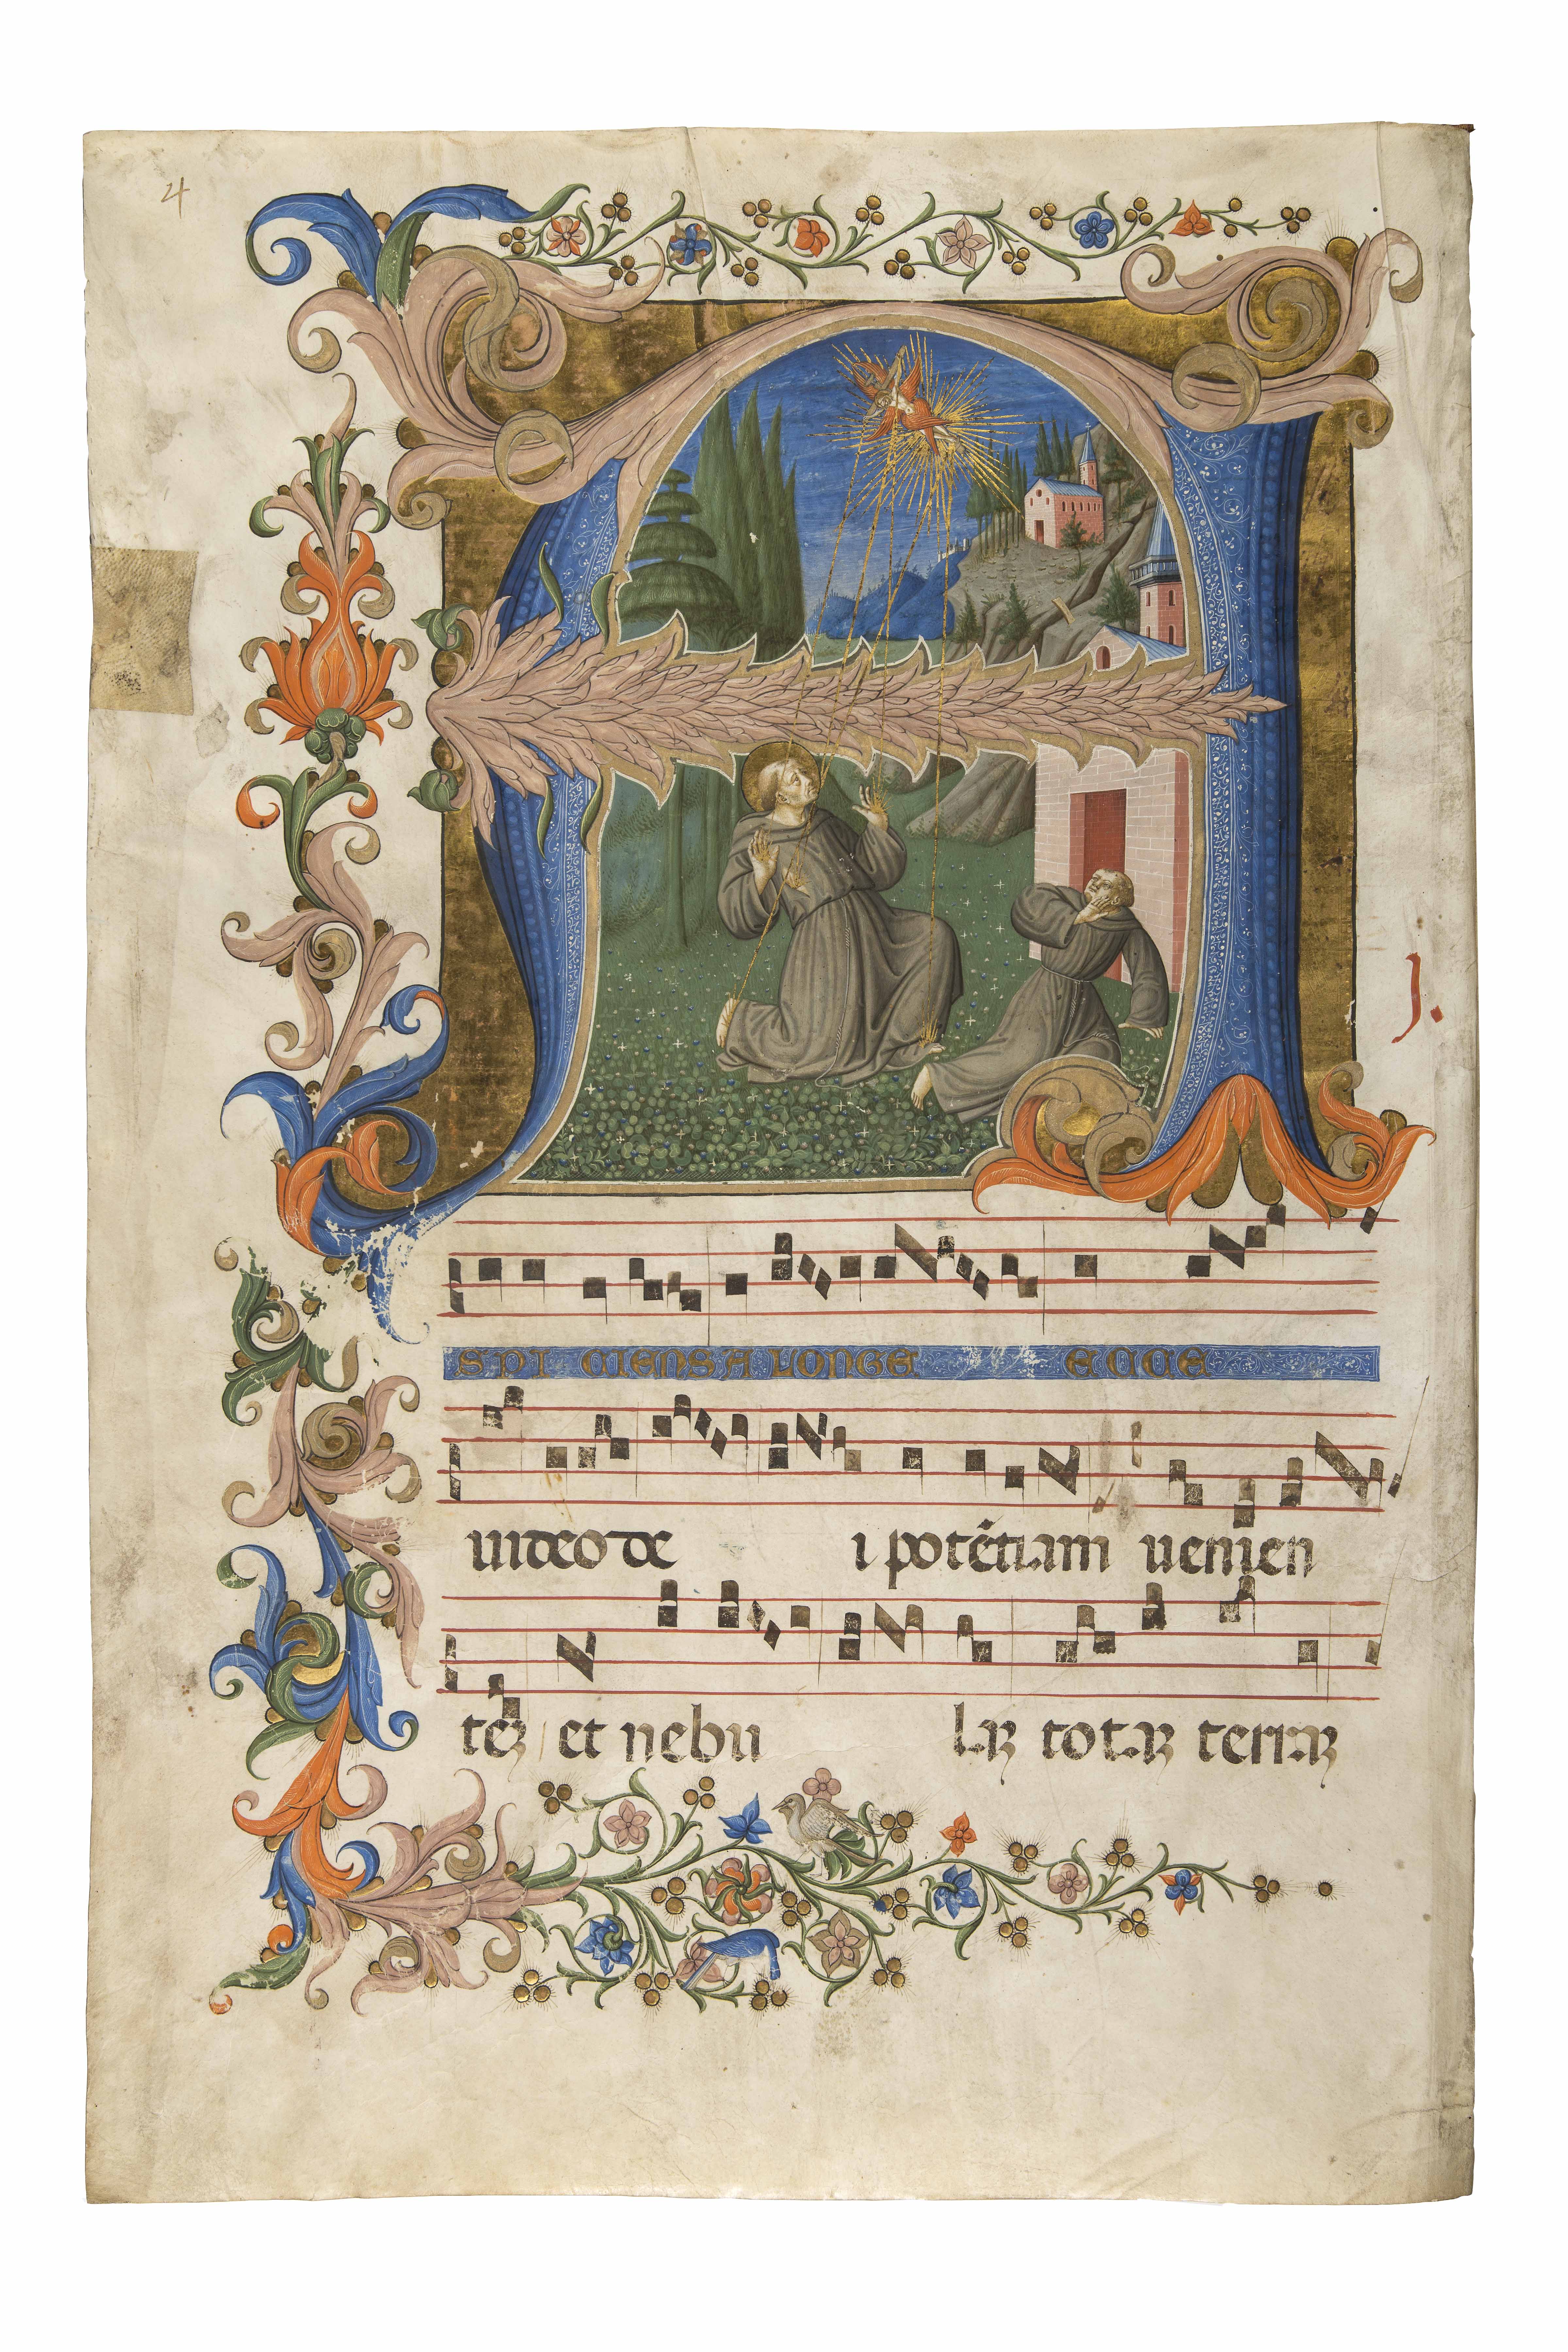 4
A
J.
SPI CIENS A LONGE ECCE
uideo de i potẽtiam uenien
teꝫ et nebu lꝫ totꝫ terrꝫ